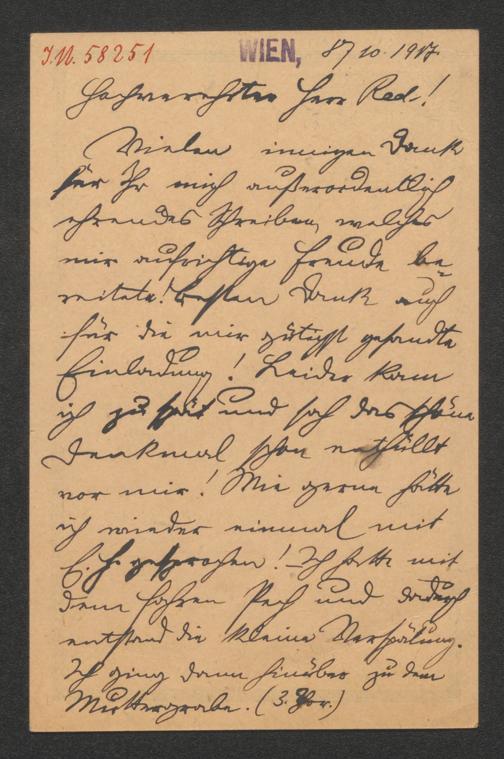 I.N. 58251
WIEN, 8/10. 1917
Hochverehrter Herr Red.!
Vielen innigen Dank
für Ihr mich außerordentlich
ehrendes Schreiben, welches
mir aufrichtige Freude be-
reitete! Besten Dank auch
für die mir gütigst gesandte
Einladung! Leider kam
ich zu spät und sah das schöne
Denkmal schon enthüllt
vor mir! Wie gerne hätte
ich wieder einmal mit
E. H. gesprochen! Ich hatte mit
dem Fahren Pech und dadurch
entstand die kleine Verspätung.
Ich ging dann hinüber zu dem
Muttergrabe. (3. Thor.)